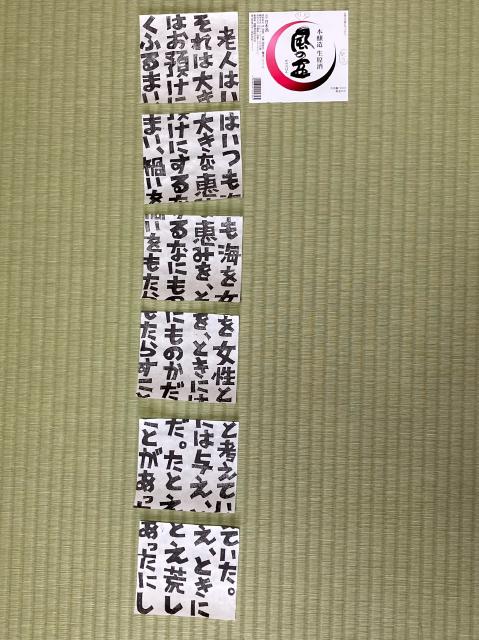 老人はい
それは大き
はお預けに
くふるまい
本醸造 生原酒
風の
はいつも海
大きな恵み
預けにするな
まい、禍いを
も海を女
な恵みを、と
るなにもの
禍いをもたら
を女性と
を、ときには
にものかだ
もたらすこと
と考えてい
には与え、
だ。たとえ
ことがあっ
ていた。
え、ときに
とえ荒し
あったにし